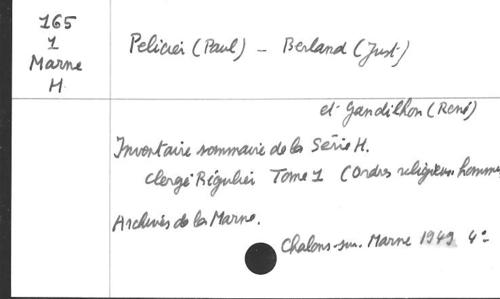 165
1
Marne
H
Pelicier (Paul) - Berland (Just)
et Gandilhon (René)
Inventaire sommaire de la Série H.
Clergé Régulier Tome 1 (Ordres religieux hommes
Archives de la Marne.
Chalons-sur-Marne 1949 4°